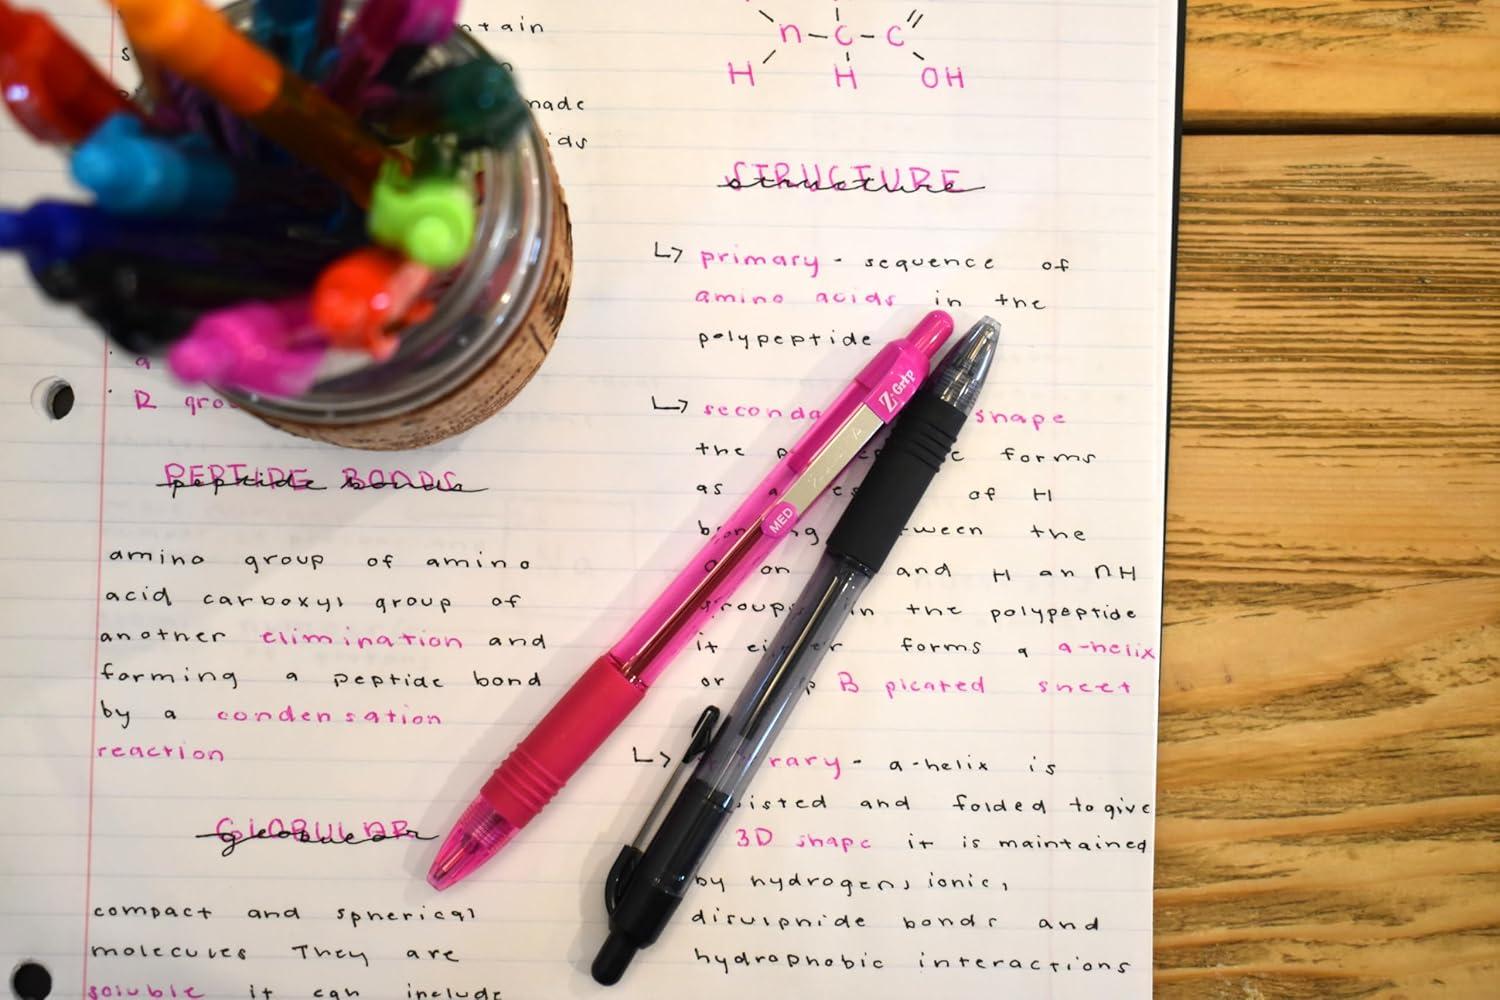 ntain
made
ids
a
R gro
PEPTIDE BONDS
peptide bonds
amino group of amino
acid carboxyl group of
another elimination and
forming a peptide bond
by a condensation
reaction
GLOBULAR
globular
compact and spherical
molecules They are
soluble it can include
n-C-C
H H OH
STRUCTURE
structure
↳ primary - sequence of
amino acids in the
polypeptide
↳ seconda shape
the forms
as a of H
ween the
on and H an NH
groups in the polypeptide
it either forms a a-helix
or B pleated sheet
↳ rary - a-helix is
isted and folded to give
3D shape it is maintained
by hydrogen, ionic,
disulphide bonds and
hydrophobic interactions
Z-Grip
MED